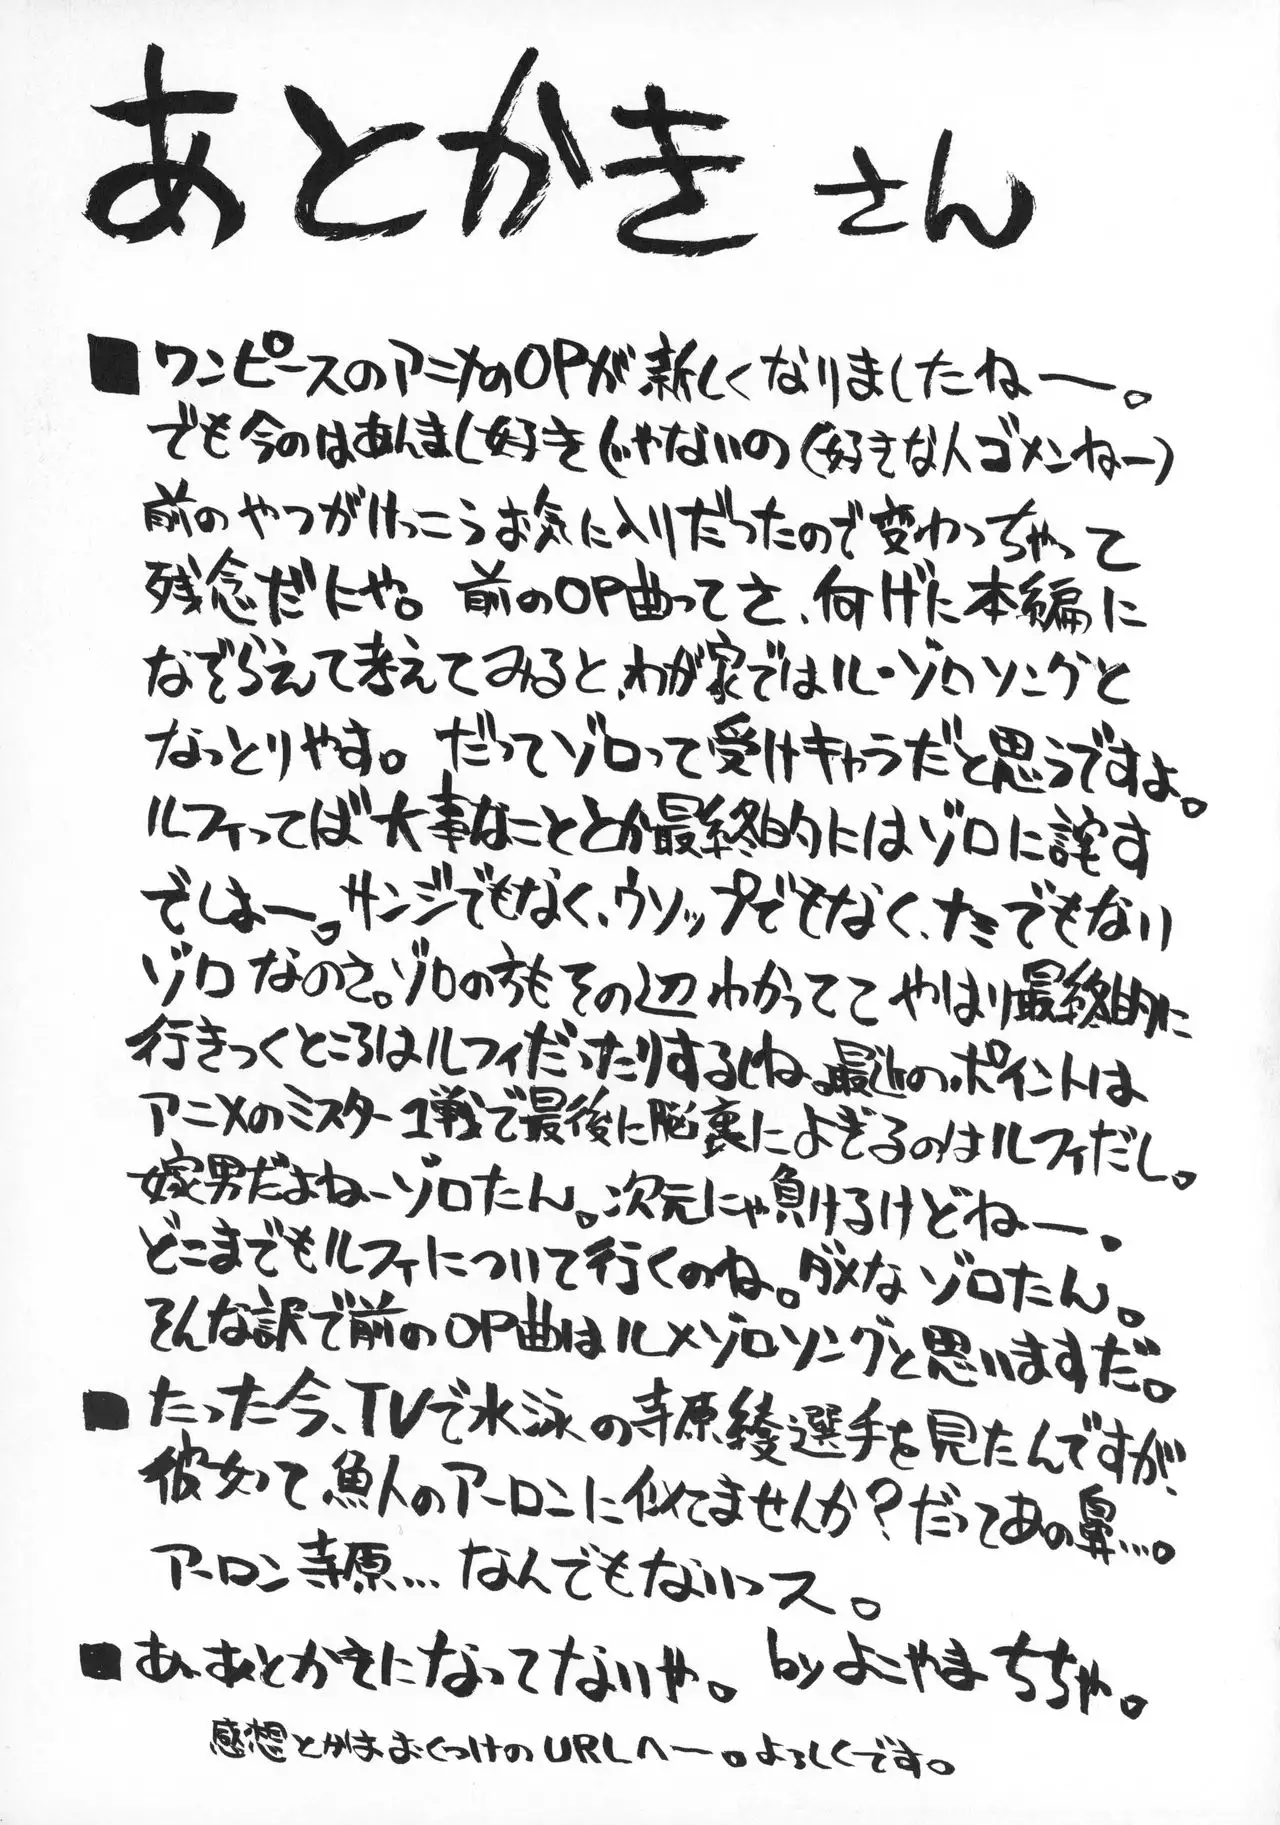 あとかき さん
■ワンピースのアニメのOPが新しくなりましたねー。
でも今のはあんまし好きじゃないの(好きな人ゴメンねー)
前のやつがけっこうお気に入りだったので変わっちゃって
残念だにゃ。前のOP曲ってさ、何げに本編に
なぞらえて考えてみると、わが家ではル・ゾロソングと
なっとりやす。だってゾロって受けキャラだと思うですよ。
ルフィってば大事なこととか最終的にはゾロに託す
でしょー。サンジでもなく、ウソップでもなく、ナミでもない
ゾロなのさ。ゾロの方もその辺わかってて やはり最終的に
行きつくところはルフィだったりするしね。最近のポイントは
アニメのミスター1戦で最後に脳裏によぎるのはルフィだし。
嫁男だよねーゾロたん。次元にゃ負けるけどねー。
どこまでもルフィについて行くのね。ダメなゾロたん。
そんな訳で前のOP曲はルメゾロソングと思いますだ。
■たった今、TVで水泳の寺原綾選手を見たんですが、
彼女って魚人のアーロンに似てませんか?だってあの鼻…。
アーロン寺原… なんでもないっス。
■あ、あとかきになってないや。 by よこやまちちゃ。
感想とかはおくづけのURLへー。よろしくです。